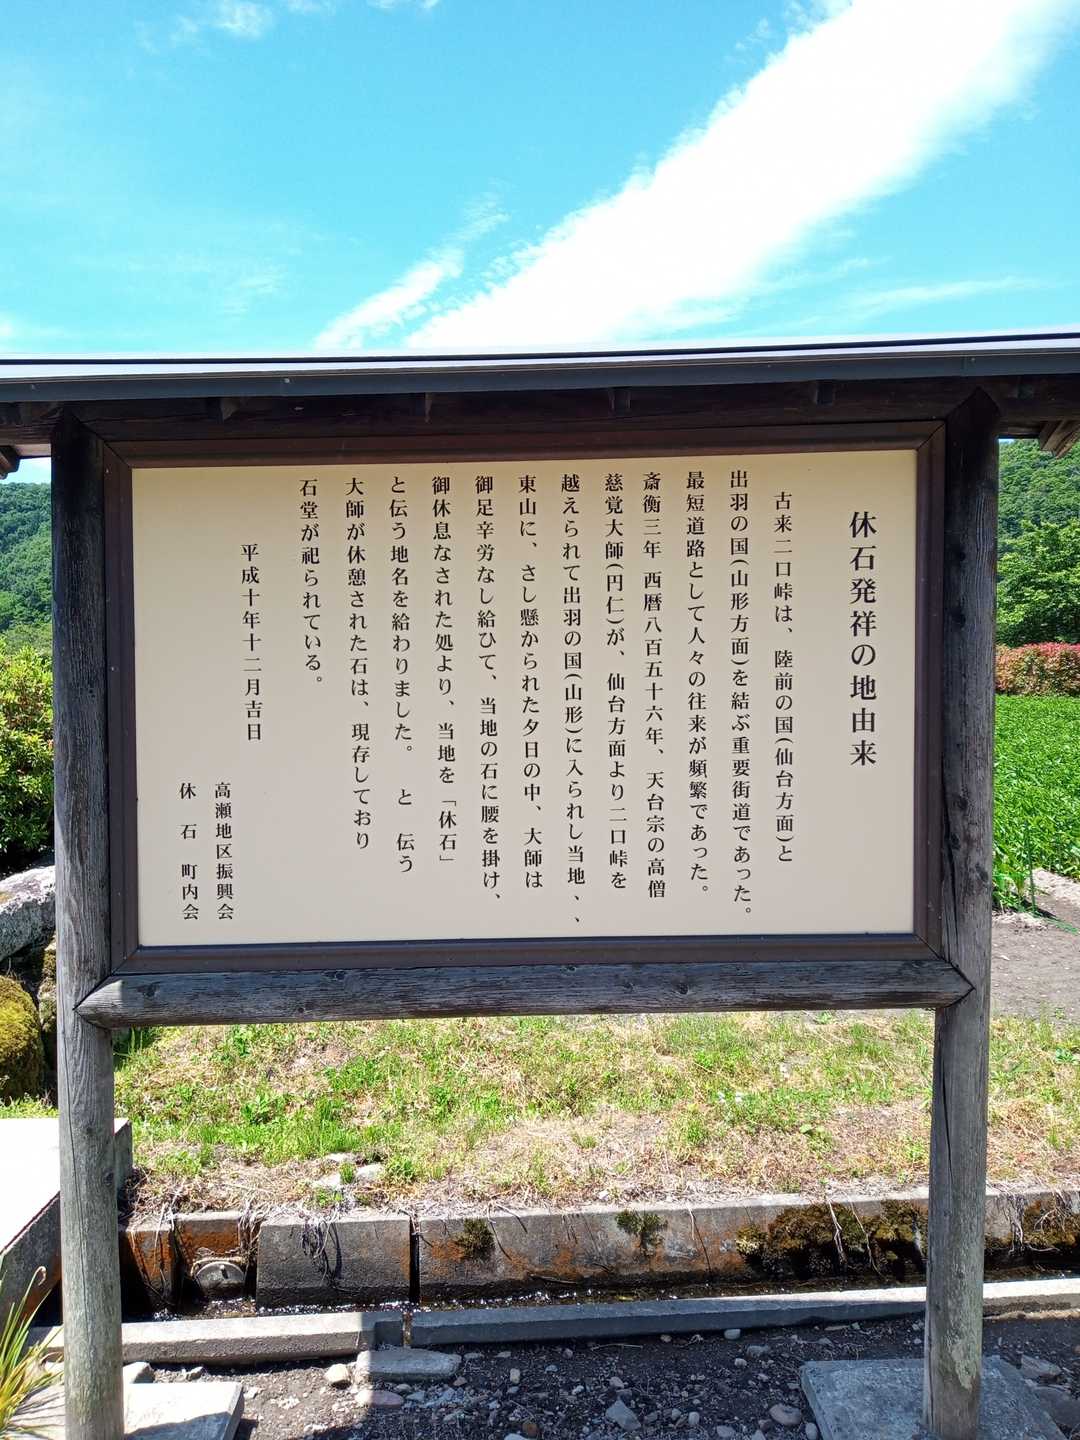 休石発祥の地由来
古来二口峠は、陸前の国(仙台方面)と
出羽の国(山形方面)を結ぶ重要街道であった。
最短道路として人々の往来が頻繁であった。
斎衡三年 西暦八百五十六年、天台宗の高僧
慈覚大師(円仁)が、仙台方面より二口峠を
越えられて出羽の国(山形)に入られし当地、、
東山に、さし懸かられた夕日の中、大師は
御足辛労なし給ひて、当地の石に腰を掛け、
御休息なされた処より、当地を「休石」
と伝う地名を給わりました。 と 伝う
大師が休憩された石は、現存しており
石堂が祀られている。
平成十年十二月吉日
高瀬地区振興会
休 石 町内会